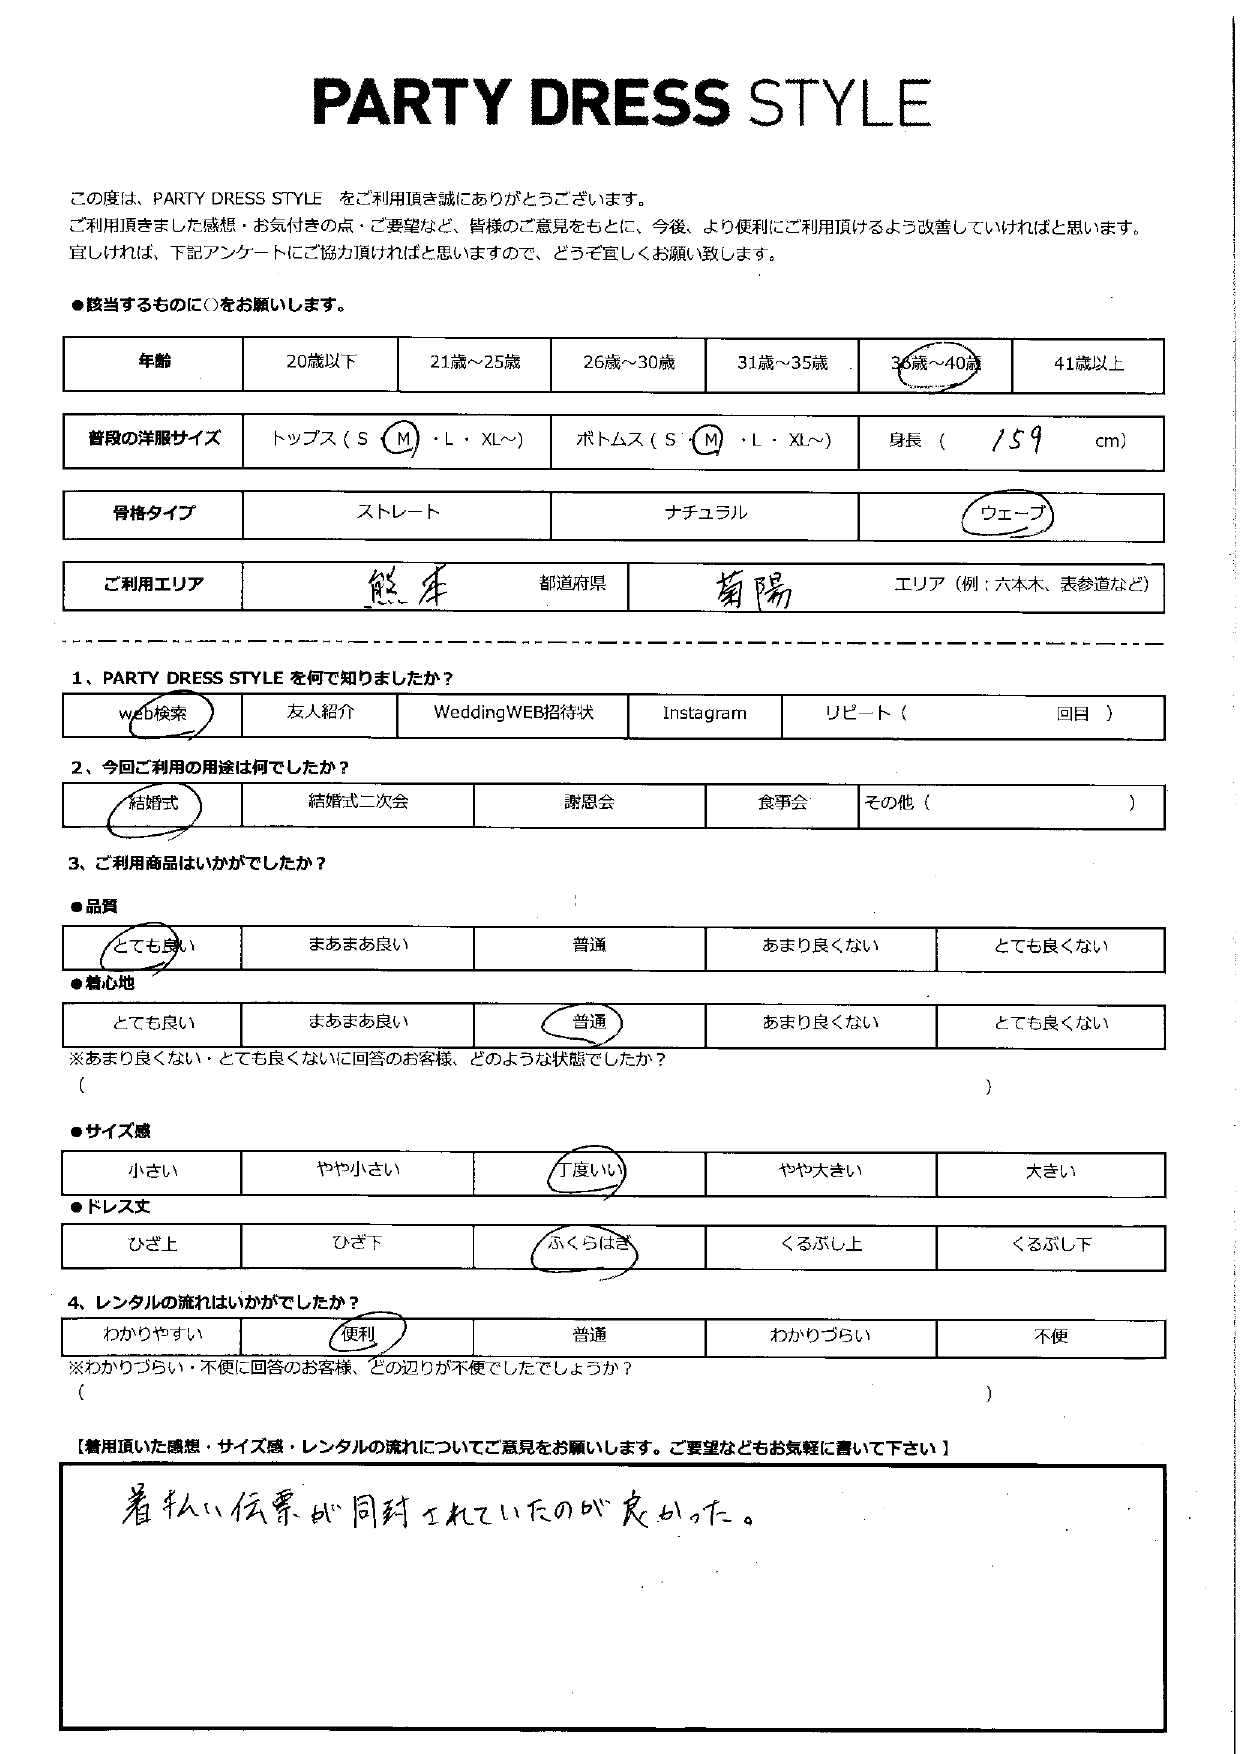 PARTY DRESS STYLE
この度は、PARTY DRESS STYLE をご利用頂き誠にありがとうございます。
ご利用頂きました感想・お気付きの点・ご要望など、皆様のご意見をもとに、今後、より便利にご利用頂けるよう改善していければと思います。
宜しければ、下記アンケートにご協力頂ければと思いますので、どうぞ宜しくお願い致します。
●該当するものに○をお願いします。
年齢 20歳以下 21歳～25歳 26歳～30歳 31歳～35歳 36歳～40歳 41歳以上
普段の洋服サイズ トップス ( S ・ M ・ L ・ XL～) ボトムス ( S ・ M ・ L ・ XL～) 身長 ( 159 cm)
骨格タイプ ストレート ナチュラル ウェーブ
ご利用エリア 熊本 都道府県 菊陽 エリア（例：六本木、表参道など）
1、PARTY DRESS STYLE を何で知りましたか？
web検索 友人紹介 WeddingWEB招待状 Instagram リピート（ 回目 ）
2、今回ご利用の用途は何でしたか？
結婚式 結婚式二次会 謝恩会 食事会 その他（ ）
3、ご利用商品はいかがでしたか？
●品質
とても良い まあまあ良い 普通 あまり良くない とても良くない
●着心地
とても良い まあまあ良い 普通 あまり良くない とても良くない
※あまり良くない・とても良くないに回答のお客様、どのような状態でしたか？
（ ）
●サイズ感
小さい やや小さい 丁度いい やや大きい 大きい
●ドレス丈
ひざ上 ひざ下 ふくらはぎ くるぶし上 くるぶし下
4、レンタルの流れはいかがでしたか？
わかりやすい 便利 普通 わかりづらい 不便
※わかりづらい・不便に回答のお客様、どの辺りが不便でしたでしょうか？
（ ）
【着用頂いた感想・サイズ感・レンタルの流れについてご意見をお願いします。ご要望などもお気軽に書いて下さい】
着払い伝票が同封されていたのが良かった。